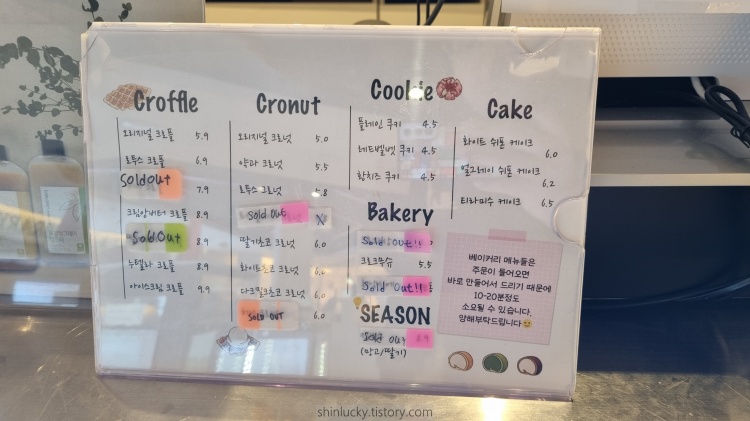 Croffle
오리지널 크로플 5.9
로투스 크로플 6.9
Sold out 7.9
크림앙버터 크로플 8.9
Sold Out 8.9
누텔라 크로플 8.9
아이스크림 크로플 9.9
Cronut
오리지널 크로넛 5.0
약과 크로넛 5.5
로투스 크로넛 5.8
Sold Out X
딸기초코 크로넛 6.0
화이트초코 크로넛 6.0
다크밀크초코 크로넛 6.0
SOLD OUT 6.0
Cookie
플레인 쿠키 4.5
레드벨벳 쿠키 4.5
황치즈 쿠키 4.5
Bakery
Sold Out!!
크로크무슈 5.5
Sold Out!!
SEASON
Sold out 8.9
(망고/딸기)
Cake
화이트 쉬폰 케이크 6.0
얼그레이 쉬폰 케이크 6.2
티라미수 케이크 6.5
베이커리 메뉴들은
주문이 들어오면
바로 만들어서 드리기 때문에
10-20분정도
소요될 수 있습니다.
양해부탁드립니다
shinlucky.tistory.com